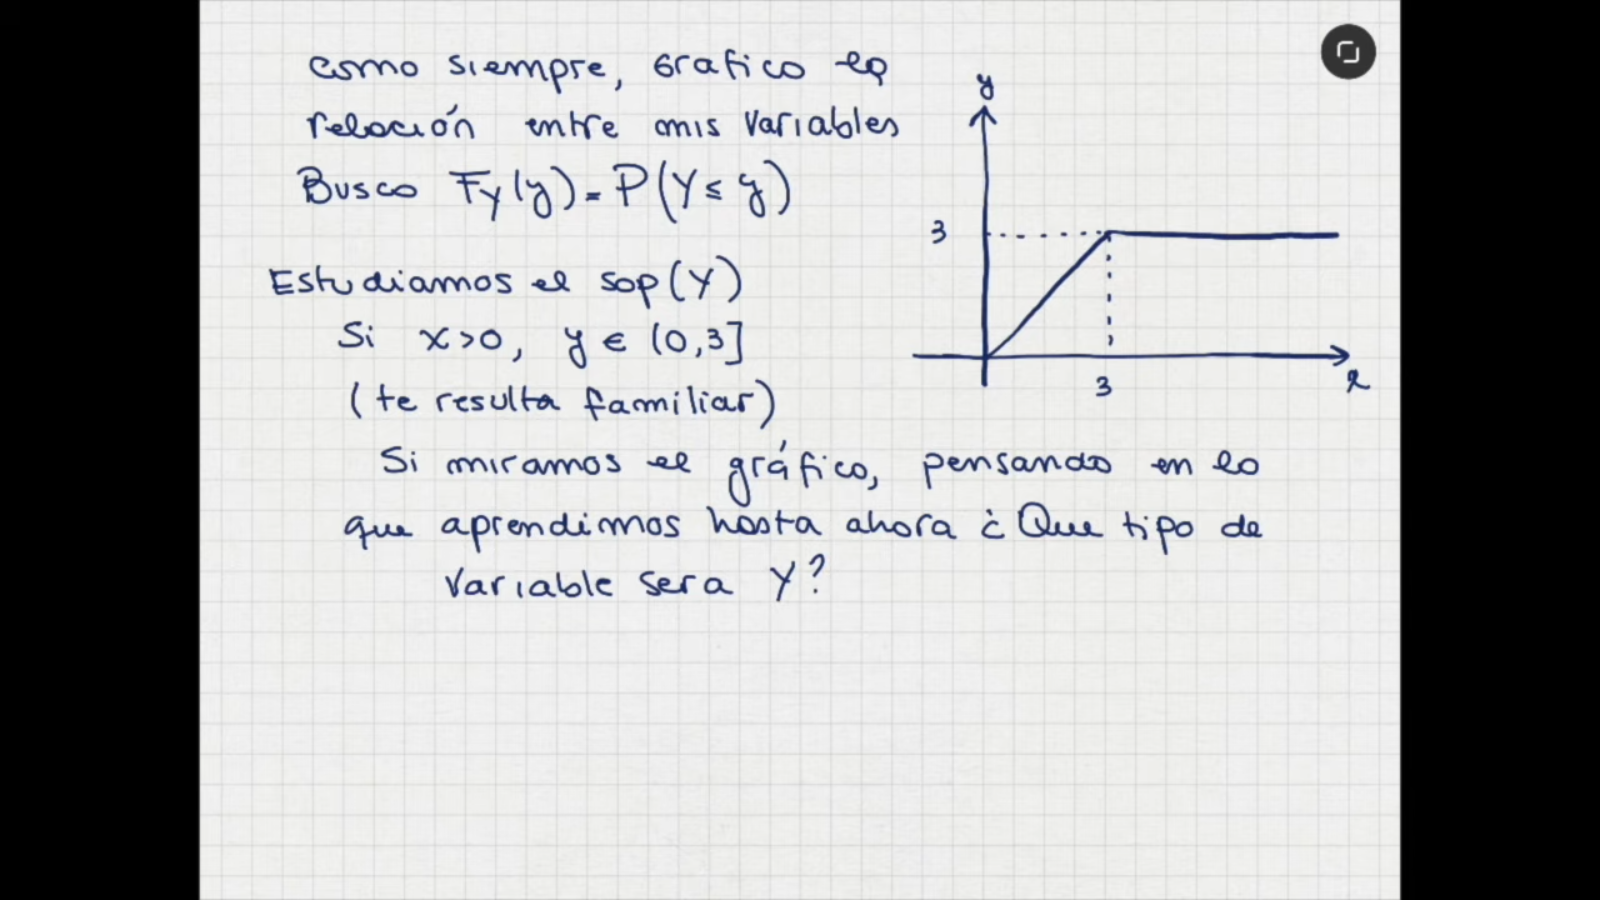 como siempre, grafico la
relación entre mis variables
Busco F_Y(y) = P(Y ≤ y)
Estudiamos el sop(Y)
Si x>0, y ∈ (0,3]
(te resulta familiar)
Si miramos el gráfico, pensando en lo
que aprendimos hasta ahora ¿Que tipo de
variable sera Y?
y
3
3
x